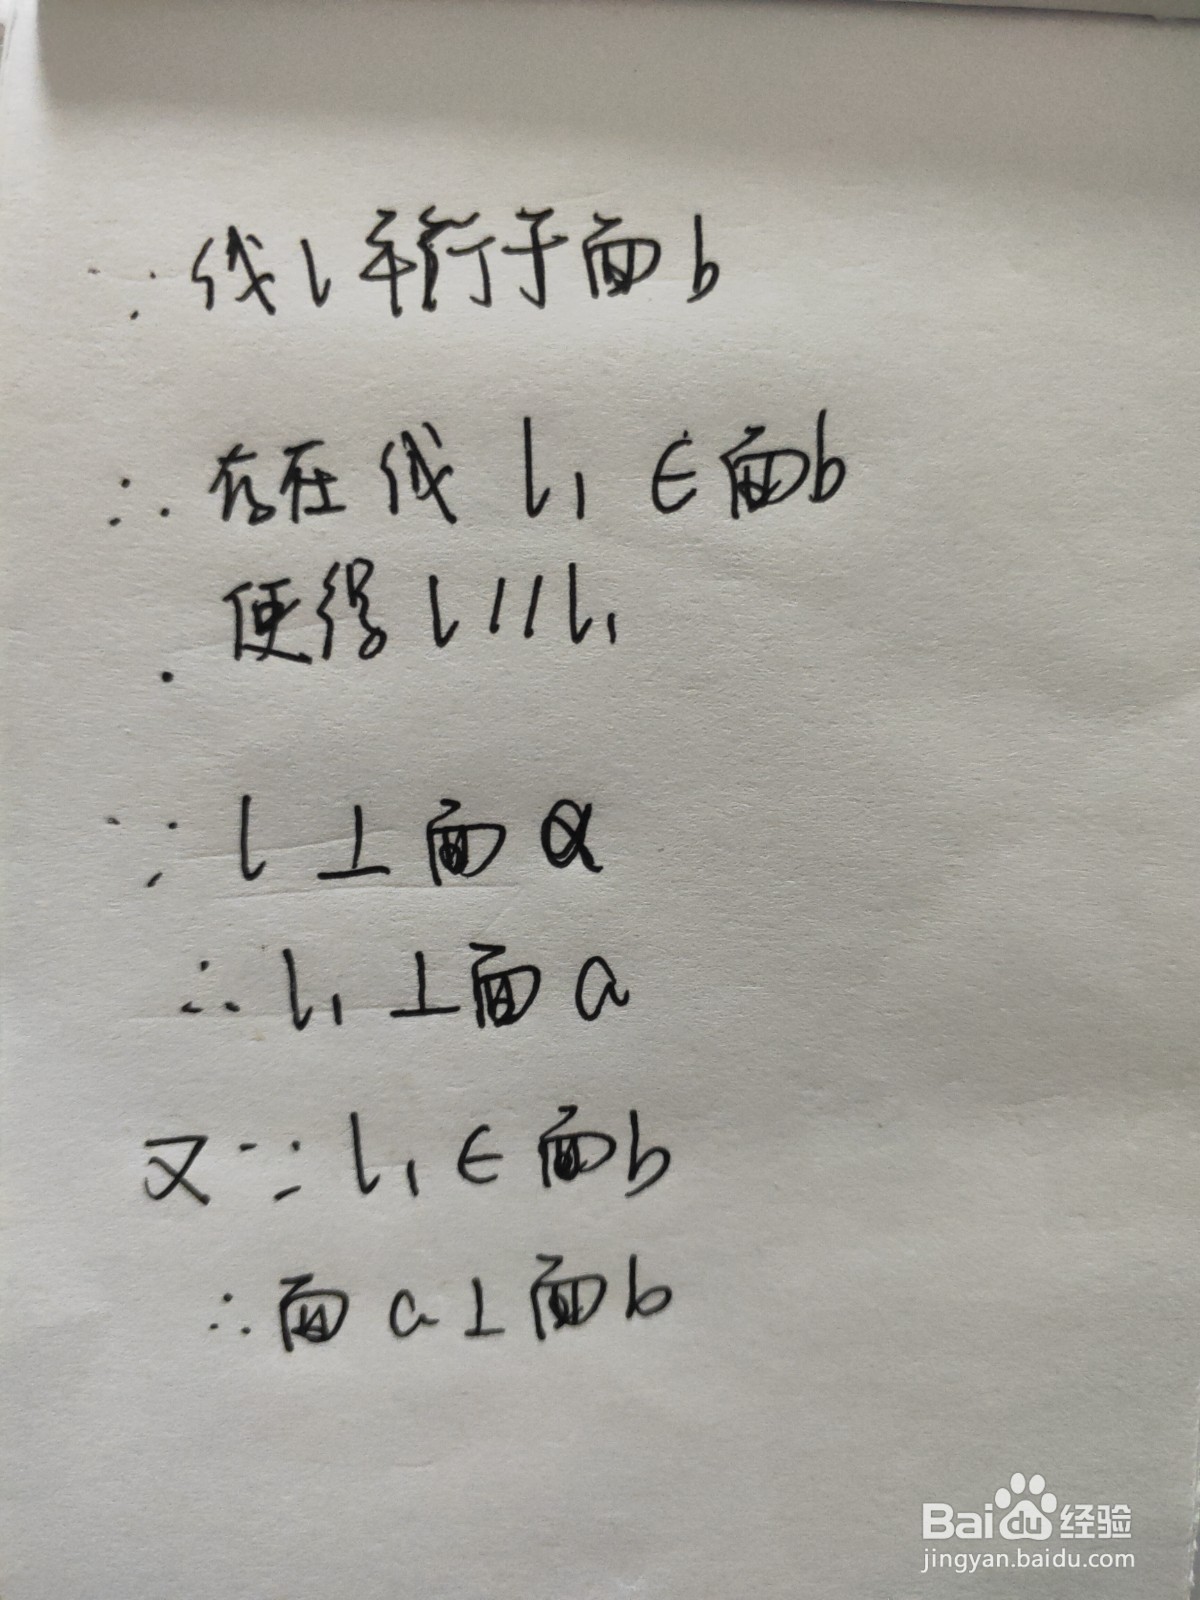 ∵线l平行于面b
∴存在线 l₁ ∈面b
使得 l//l₁
∵ l ⊥面 a
∴ l₁ ⊥面 a
又∵ l₁ ∈ 面b
∴面 a⊥面b
Baidu经验
jingyan.baidu.com